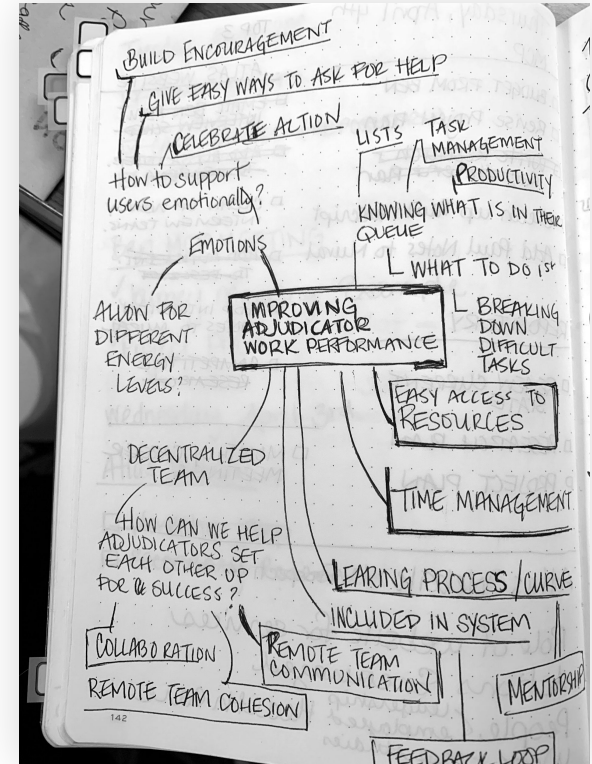 BUILD ENCOURAGEMENT
GIVE EASY WAYS TO ASK FOR HELP
CELEBRATE ACTION
How to support
users emotionally?
EMOTIONS
ALLOW FOR
DIFFERENT
ENERGY
LEVELS?
LISTS
TASK
MANAGEMENT
PRODUCTIVITY
KNOWING WHAT IS IN THEIR
QUEUE
WHAT TO DO 1st
BREAKING
DOWN
DIFFICULT
TASKS
IMPROVING
ADJUDICATOR
WORK PERFORMANCE
EASY ACCESS TO
RESOURCES
TIME MANAGEMENT
DECENTRALIZED
TEAM
HOW CAN WE HELP
ADJUDICATORS SET
EACH OTHER UP
FOR SUCCESS?
COLLABORATION
REMOTE TEAM COHESION
REMOTE TEAM
COMMUNICATION
LEARING PROCESS/CURVE
INCLUDED IN SYSTEM
MENTORSHIP
FEEDBACK LOOP
142